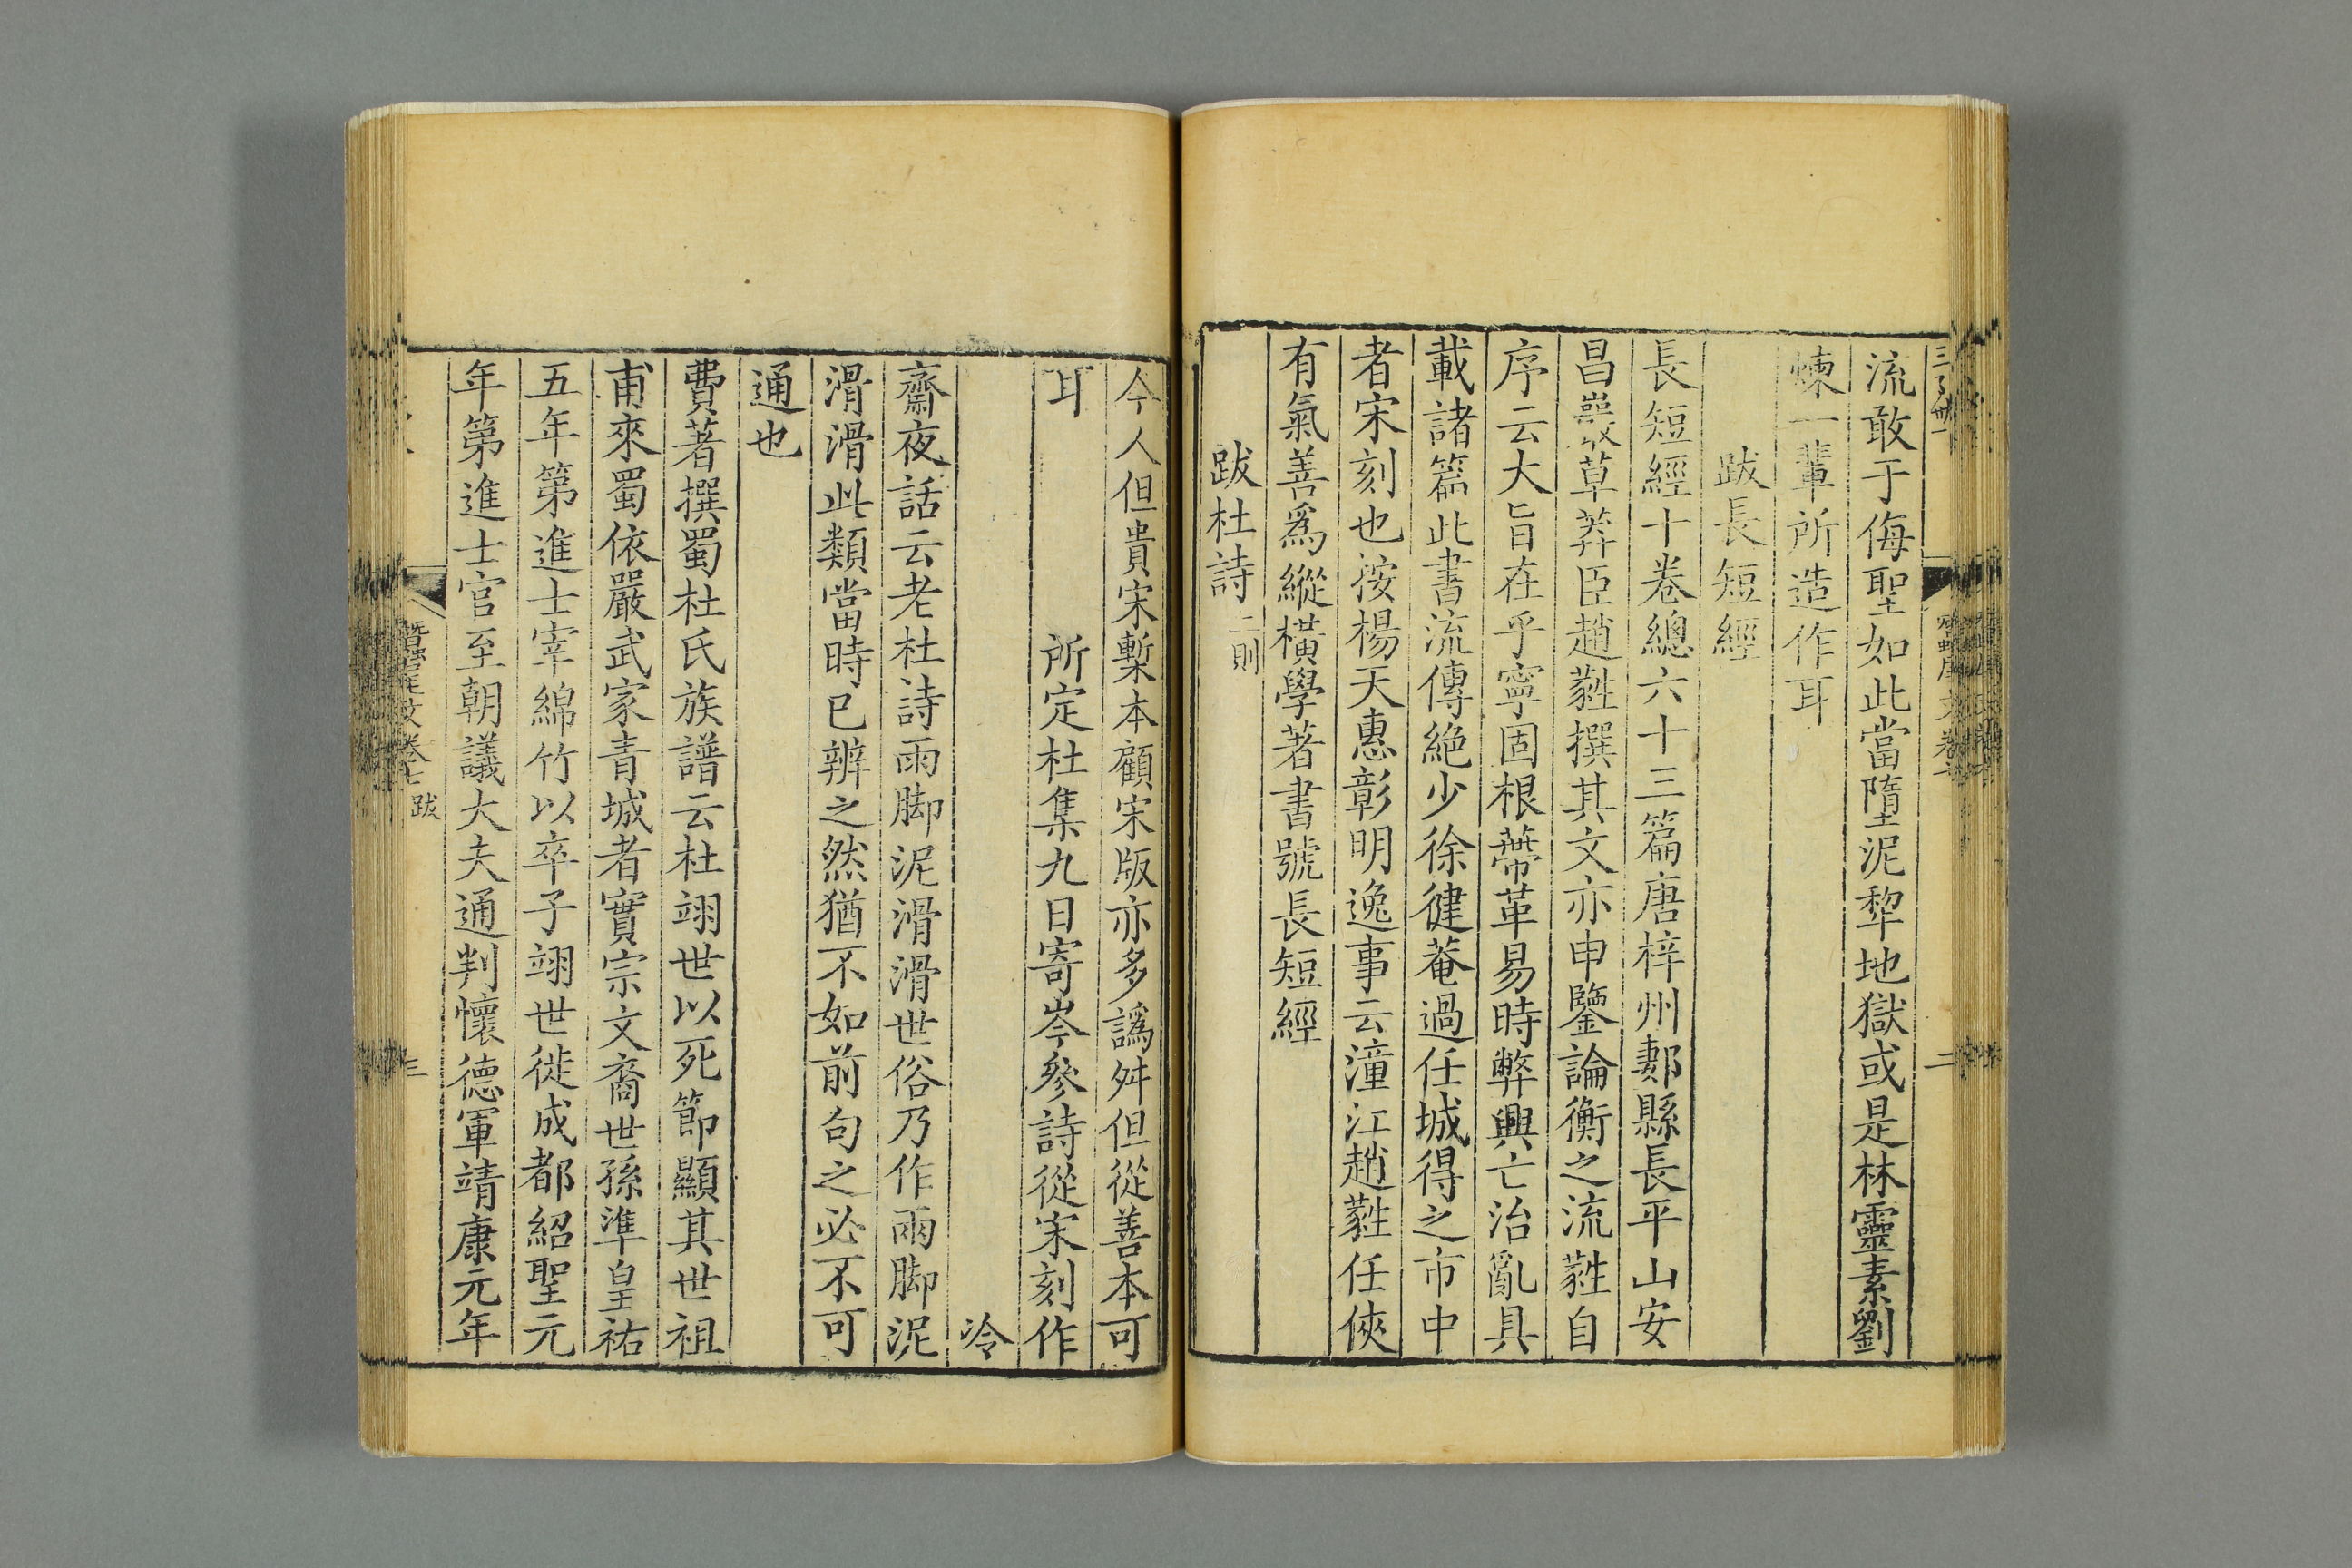 流敢于侮聖如此當墮泥犂地獄或是林靈素劉
煉一輩所造作耳
跋長短經
長短經十卷總六十三篇唐梓州郪縣長平山安
昌巖草莽臣趙蕤撰其文亦申鑒論衡之流蕤自
序云大旨在乎寧固根蔕革易時弊興亡治亂具
載諸篇此書流傳絶少徐健菴過任城得之市中
者宋刻也按楊天惠彰明逸事云潼江趙蕤任俠
有氣善爲縱横學著書號長短經
跋杜詩二則
今人但貴宋槧本顧宋版亦多譌舛但從善本可
耳
所定杜集九日寄岑參詩從宋刻作
冷
齋夜話云老杜詩雨脚泥滑滑世俗乃作雨脚泥
滑滑此類當時已辨之然猶不如前句之必不可
通也
費著撰蜀杜氏族譜云杜翊世以死節顯其世祖
甫來蜀依嚴武家青城者實宗文裔世孫準皇祐
五年第進士宰綿竹以卒子翊世徙成都紹聖元
年第進士官至朝議大夫通判懷德軍靖康元年
卷七 跋
三